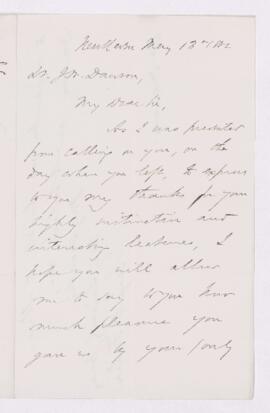 May 13th
Dr. J. W. Dawson,
My dear Sir,
As I was prevented
from calling on you, on the
day when you left, to express
to you my thanks for your
highly instructive and
interesting lectures, I
hope you will allow
me to say to you how
much pleasure you
gave us by your